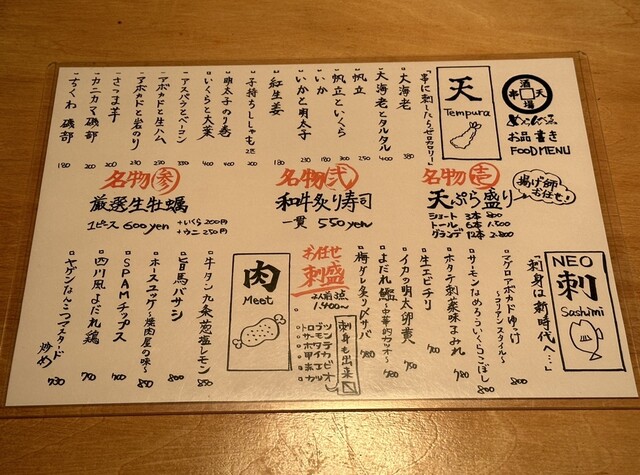 酒
天
場
串
お品書き
FOOD MENU
天
Tempura
「串に刺したらゼロカロリー」
・大海老 380
・大海老とタルタル 400
・帆立 250
・帆立といくら 300
・いか 180
・いかと明太子 230
・紅生姜 180
・子持ちししゃも 2匹
・明太子のり巻 400
・いくらと大葉 400
・アスパラとベーコン 330
・アボカドと生ハム 230
・アボカドと岩のり 230
・さつま芋 200
・カニカマ磯部 200
・ちくわ磯部 180
名物壱
天ぷら盛り
揚げ師お任せ!
ショート 3本 800
トール 6本 1.500
グランデ 12本 2.800
名物弐
和牛炙り寿司
一貫 550yen
名物参
厳選生牡蠣
1ピース 600yen
+いくら 200円
+ウニ 250円
NEO
刺
Sashimi
「刺身は新時代へ…」
・マグロアボカドゆっけ ～コリアンスタイル～ 800
・サーモンなめろういくらこぼし 800
・ホタテ刺薬味まみれ
・生エビチリ 700
・イカの明太卵黄 750
・よだれ鰹 ～中華的カツオ～ 780
・梅ダレ炙り〆サバ 780
お任せ
刺盛
2人前 3点
1.400～
刺身も出来〼
肉
Meet
・牛タン九条葱塩レモン 850
・旨馬バサシ 800
・ホースユッケ ～焼肉屋の味～ 850
・SPAMチップス 700
・四川風よだれ鶏 780
・ヤゲンなんこつマスタード炒め 730